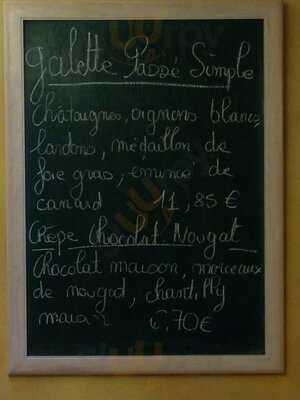 galette Passé Simple
Châtaignes, oignons blancs,
lardons, médaillon de
foie gras, émincé de
canard 11,85 €
Crêpe Chocolat Nougat
Chocolat maison, morceaux
de nougat, chantilly
maison 6,70€